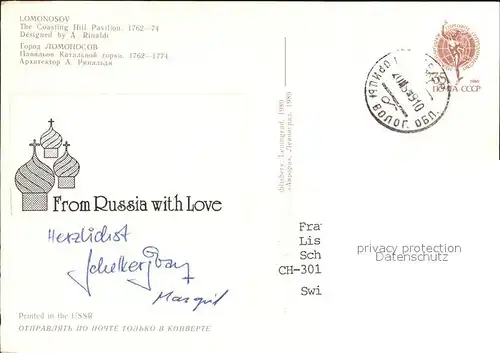 LOMONOSOV
The Coasting Hill Pavilion. 1762—74
Designed by A. Rinaldi
Город ЛОМОНОСОВ
Павильон Катальной горки. 1762—1774
Архитектор А. Ринальди
35
ПОЧТА СССР
ВОЛОГ. ОБЛ.
From Russia with Love
Herzlichst
Printed in the USSR
ОТПРАВЛЯТЬ ПО ПОЧТЕ ТОЛЬКО В КОНВЕРТЕ
Leningrad. 1980
«Аврора». Ленинград. 1980
Fra
Lis
Sch
CH-301
Swi
privacy protection
Datenschutz